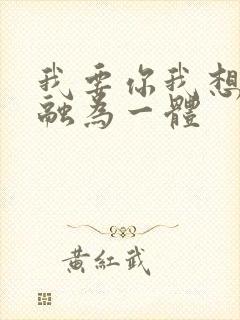 我要你我想
融為一體
黃紅武